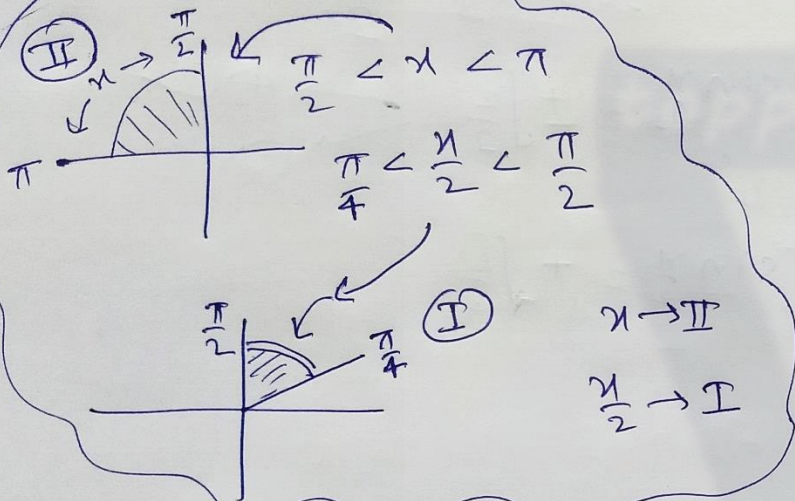 II
x → π/2
π/2 < x < π
π
π/4 < x/2 < π/2
π/2
I
π/4
x → II
x/2 → I